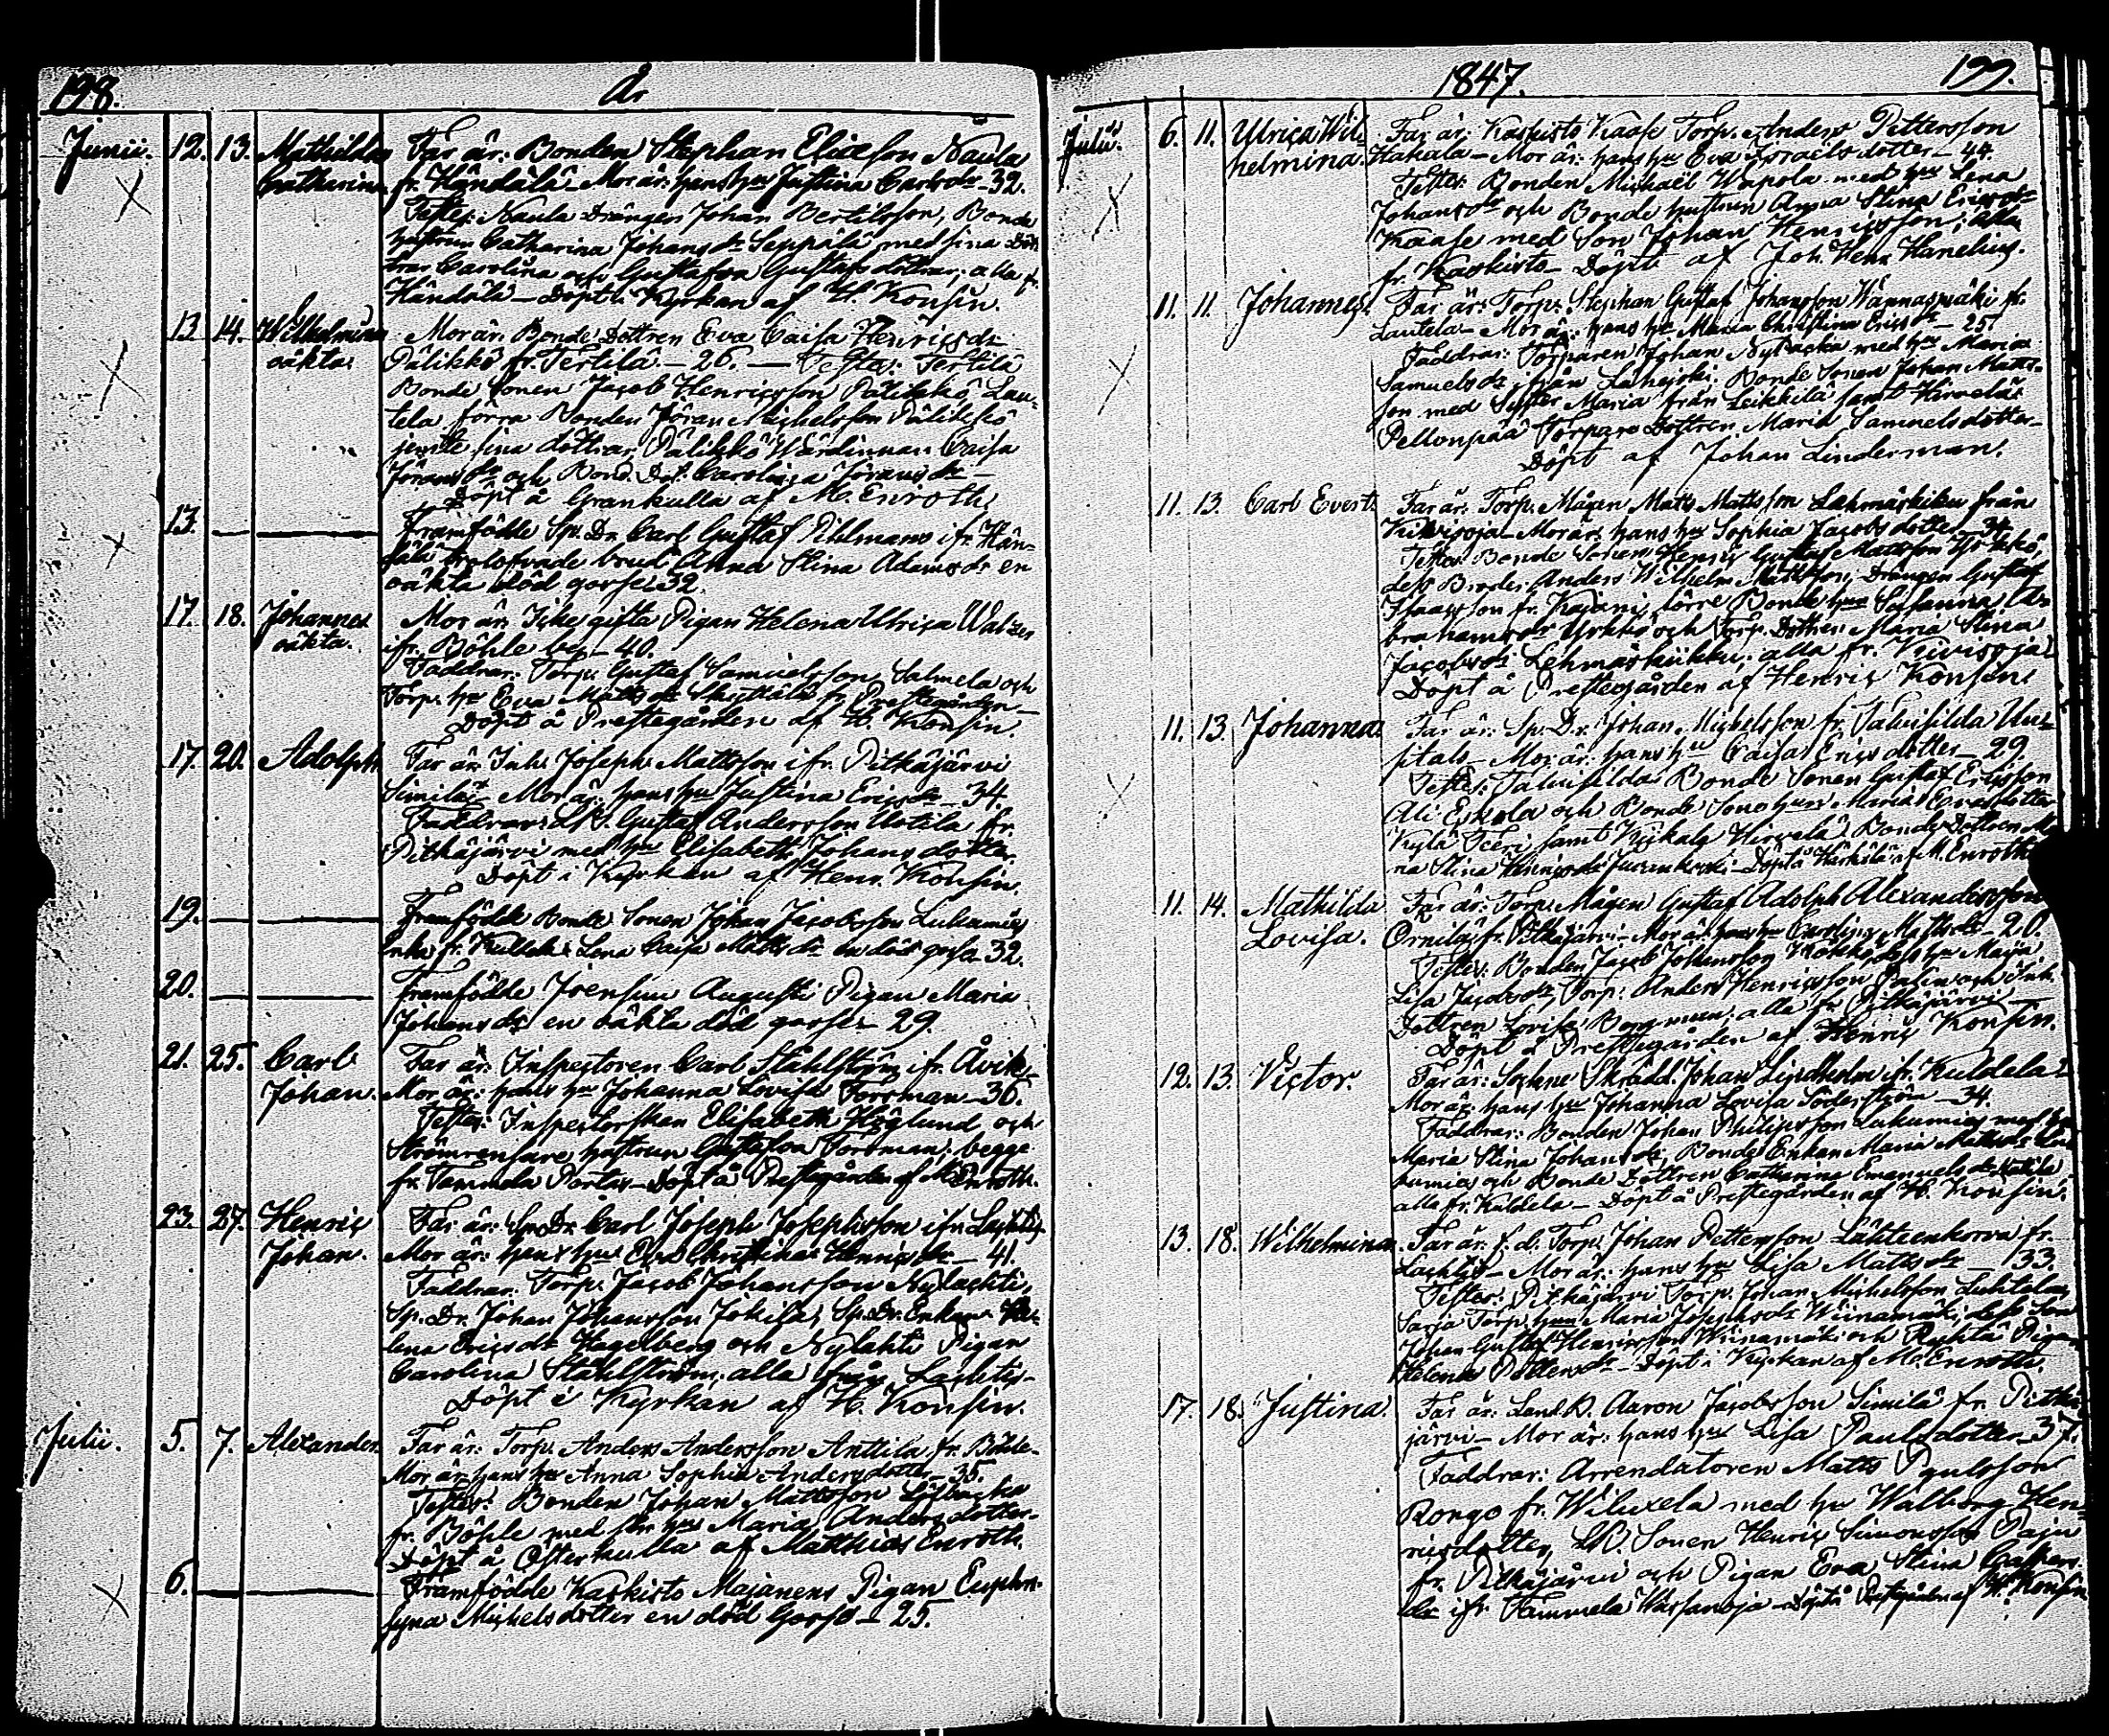 198. År
Junii. 12. 13. Mathilda Far är: Bonden Stephan Ericsson Naula
Catharina fr. Händälä – Mor är: hans hu Justina Carlsdr – 32.
Testes: Naula Drängen Johan Bertilsson, Bonde
hustrun Catharina Johansdr Seppälä med sina Dött
trar Carolina och Gustafva Gustafsdöttrar; alla fr.
Händälä – Döpt i Kyrkan af H. Konsin.
13. 14. Wilhelmina Mor är: Bonde Dottren Eva Caisa Henricsdr
oäkta. Pälikkö fr. Tertilä – 26. – Testes: Tertilä
Bonde Sonen Jacob Henricsson Pälikkö, Lau-
tela förra Bonden Jöran Michelsson Pälikkö
jemte sina döttrar, Pälikkö Wärdinnan Caisa
Jöransdr och Bond. Dot. Carolina Jöransdr –
Döpt å Grankulla af M. Enroth.
13. Framfödde Sp. Dr. Carl Gustaf Pihlmans ifr. Hän-
dälä trolofvade brud Anna Stina Adamsdr en
oäkta död gosse 32.
17. 18. Johannes Mor är: Icke gifta Pigan Helena Ulrica
oäkta. ifr. Böhle by – 40.
Faddrar: Torp. Gustaf Samuelsson Salmela och
Torp. hu Eva Mattsdr fr. Prestegården –
Döpt å Prestegården af H. Konsin.
17. 20. Adolph Far är: Inh. Joseph Mattsson ifr. Pitkäjärvi
Similä – Mor är: hans hu Justina Ericsdr – 34.
Faddrar: Gustaf Andersson Uotila fr.
Pitkäjärvi med hu Elisabeth Johansdotter.
Döpt i Kyrkan af Henr. Konsin.
19. Framfödde Bonde Sonen Johan Jacobsson Lukumies
Enka fr. Lena Caisa Mattsdr en död gosse 32.
20. Framfödde Joensuu Augusti Pigan Maria
Johansdr en oäkta död gosse – 29.
21. 25. Carl Far är: Inspectoren Carl Ståhlström ifr. Åvik –
Johan. Mor är: hans hu Johanna Lovisa Forsman – 36.
Testes: Inspectorskan Elisabeth Höglund och
Strömrensare hustrun Gustafva Forsman; begge
fr. Tammela Portas – Döpt å Prestegården af M. Enroth.
23. 27. Henric Far är: Sp. Dr. Carl Joseph Josephsson ifr. Lachtis
Johan. Mor är: hans hu Eva Christina Henricsdr – 41.
Faddrar: Torp. Jacob Johansson Nylachti,
Sp. Dr. Johan Johansson Jokila, Sp. Dr. Enkan He-
lena Ericsdr Hagelberg och Nylahti Pigan
Carolina Ståhlström; alla från Lachtis –
Döpt i Kyrkan af H. Konsin.
Julii. 5. 7. Alexander. Far är: Torp. Anders Andersson Anttila fr. Böhle –
Mor är: hans hu Anna Sophia Andersdotter – 35.
Testes: Bonden Johan Mattsson
fr. Böhle med hu Maria Andersdotter –
Döpt å Österkulla af Matthias Enroth.
6. Framfödde Kaskisto Majanens Pigan Euphro-
syna Michelsdotter en död Gosse – 25.
1847. 199.
Julii. 6. 11. Ulrica Wil- Far är: Kaskisto Kaase Torp. Anders Pettersson
helmina. Hakala – Mor är: hans hu Eva Israelsdotter – 44.
Testes: Bonden Michaël Wapola med hu Lena
Johansdr och Bonde hustrun Anna Stina Ericsdr
Kaase med Son Johan Henricsson; alla
fr. Kaskisto – Döpt af Joh. Henr. Hanelius.
11. 11. Johannes. Far är: Torp. Stephan Gustaf Johansson fr.
Lautela – Mor är: hans hu Maria Christina Ericsdr – 25.
Faddrar: Torparen Johan Nybacka med hu Maria
Samuelsdr ifrån Bonde Sonen Johan Matts-
son med Syster Maria från Leikkilä samt Hirvelä
Pellonpää Torpare Dottren Maria Samuelsdotter –
Döpt af Johan Linderman.
11. 13. Carl Evert. Far är: Torp. Mågen Matts Mattsson från
Kuivisoja – Mor är: hans hu Sophia Jacobsdotter – 34.
Testes: Bonde Sonen Henric Gustaf Mattsson
dess Broder Anders Wilhelm Mattsson, Drängen Gustaf
Isaacsson fr. Bonde hun Susanna A-
brahamsdr och Torp. Dottren Maria Stina
Jacobsdr alla fr. Kuivisoja
Döpt å Prestegården af Henric Konsin.
11. 13. Johanna. Far är: Sp. Dr. Johan Michelsson fr. Talvisilda Uus-
pitalo – Mor är: hans hu Caisa Ericsdotter – 29.
Testes: Talvisilda Bonde Sonen Gustaf Ericsson
Ali Eskola och Bonde Sons hun Maria
Kylä samt Hirvelä Bonde Dottren
na Stina Henricsdr – Döpt å Härkälä af M. Enroth
11. 14. Mathilda Far är: Torp. Mågen Gustaf Adolph Alexandersson
Lovisa. Ornila fr. Pitkäjärvi – Mor är: hans hu Carolina Mattsdr – 20.
Testes: Bonden Jacob Johansson dess hu Maja
Lisa Jacobsdr, Torp: Anders Henricsson och Inh.
Dottren Lovisa alla fr. Pitkäjärvi –
Döpt å Prestegården af Henric Konsin.
12. 13. Victor. Far är: Sockne Skrädd. Johan Lindholm ifr. Kuldela –
Mor är: hans hu Johanna Lovisa Söderström – 34.
Faddrar: Bonden Johan Philipsson Lukumies med hu
Maria Stina Johansdr, Bonde Enkan Maria Mattsdr Lu-
kumies och Bonde Dottren Catharina Emanuelsdr
alla fr. Kuldela – Döpt å Prestegården af H. Konsin.
13. 18. Wilhelmina. Far är: f. d. Torp. Johan Pettersson Lähteenkorva fr.
Lachtis – Mor är: hans hu Lisa Mattsdr – 33.
Testes: Pitkäjärvi Torp. Johan Michelsson
Sarja Torp. hun Maria Josephsdr Wiinamäki, dess Son
Johan Gustaf Henricsson Wiinamäki och Pigan
Helena Pettersdr – Döpt i Kyrkan af M. Enroth.
17. 18. Justina. Far är: Land. B. Aaron Jacobsson Similä fr. Pitkä-
järvi – Mor är: hans hu Lisa Paulsdotter – 37.
Faddrar: Arrendatoren Matts Paulsson
Rongo fr. Wiluxela med hu Walborg Hen-
ricsdotter, LB. Sonen Henric Simonsson Paju
fr. Pitkäjärvi och Pigan Eva Stina Caspers-
dr ifr. Tammela – Döpt å Prestgården af H. Konsin